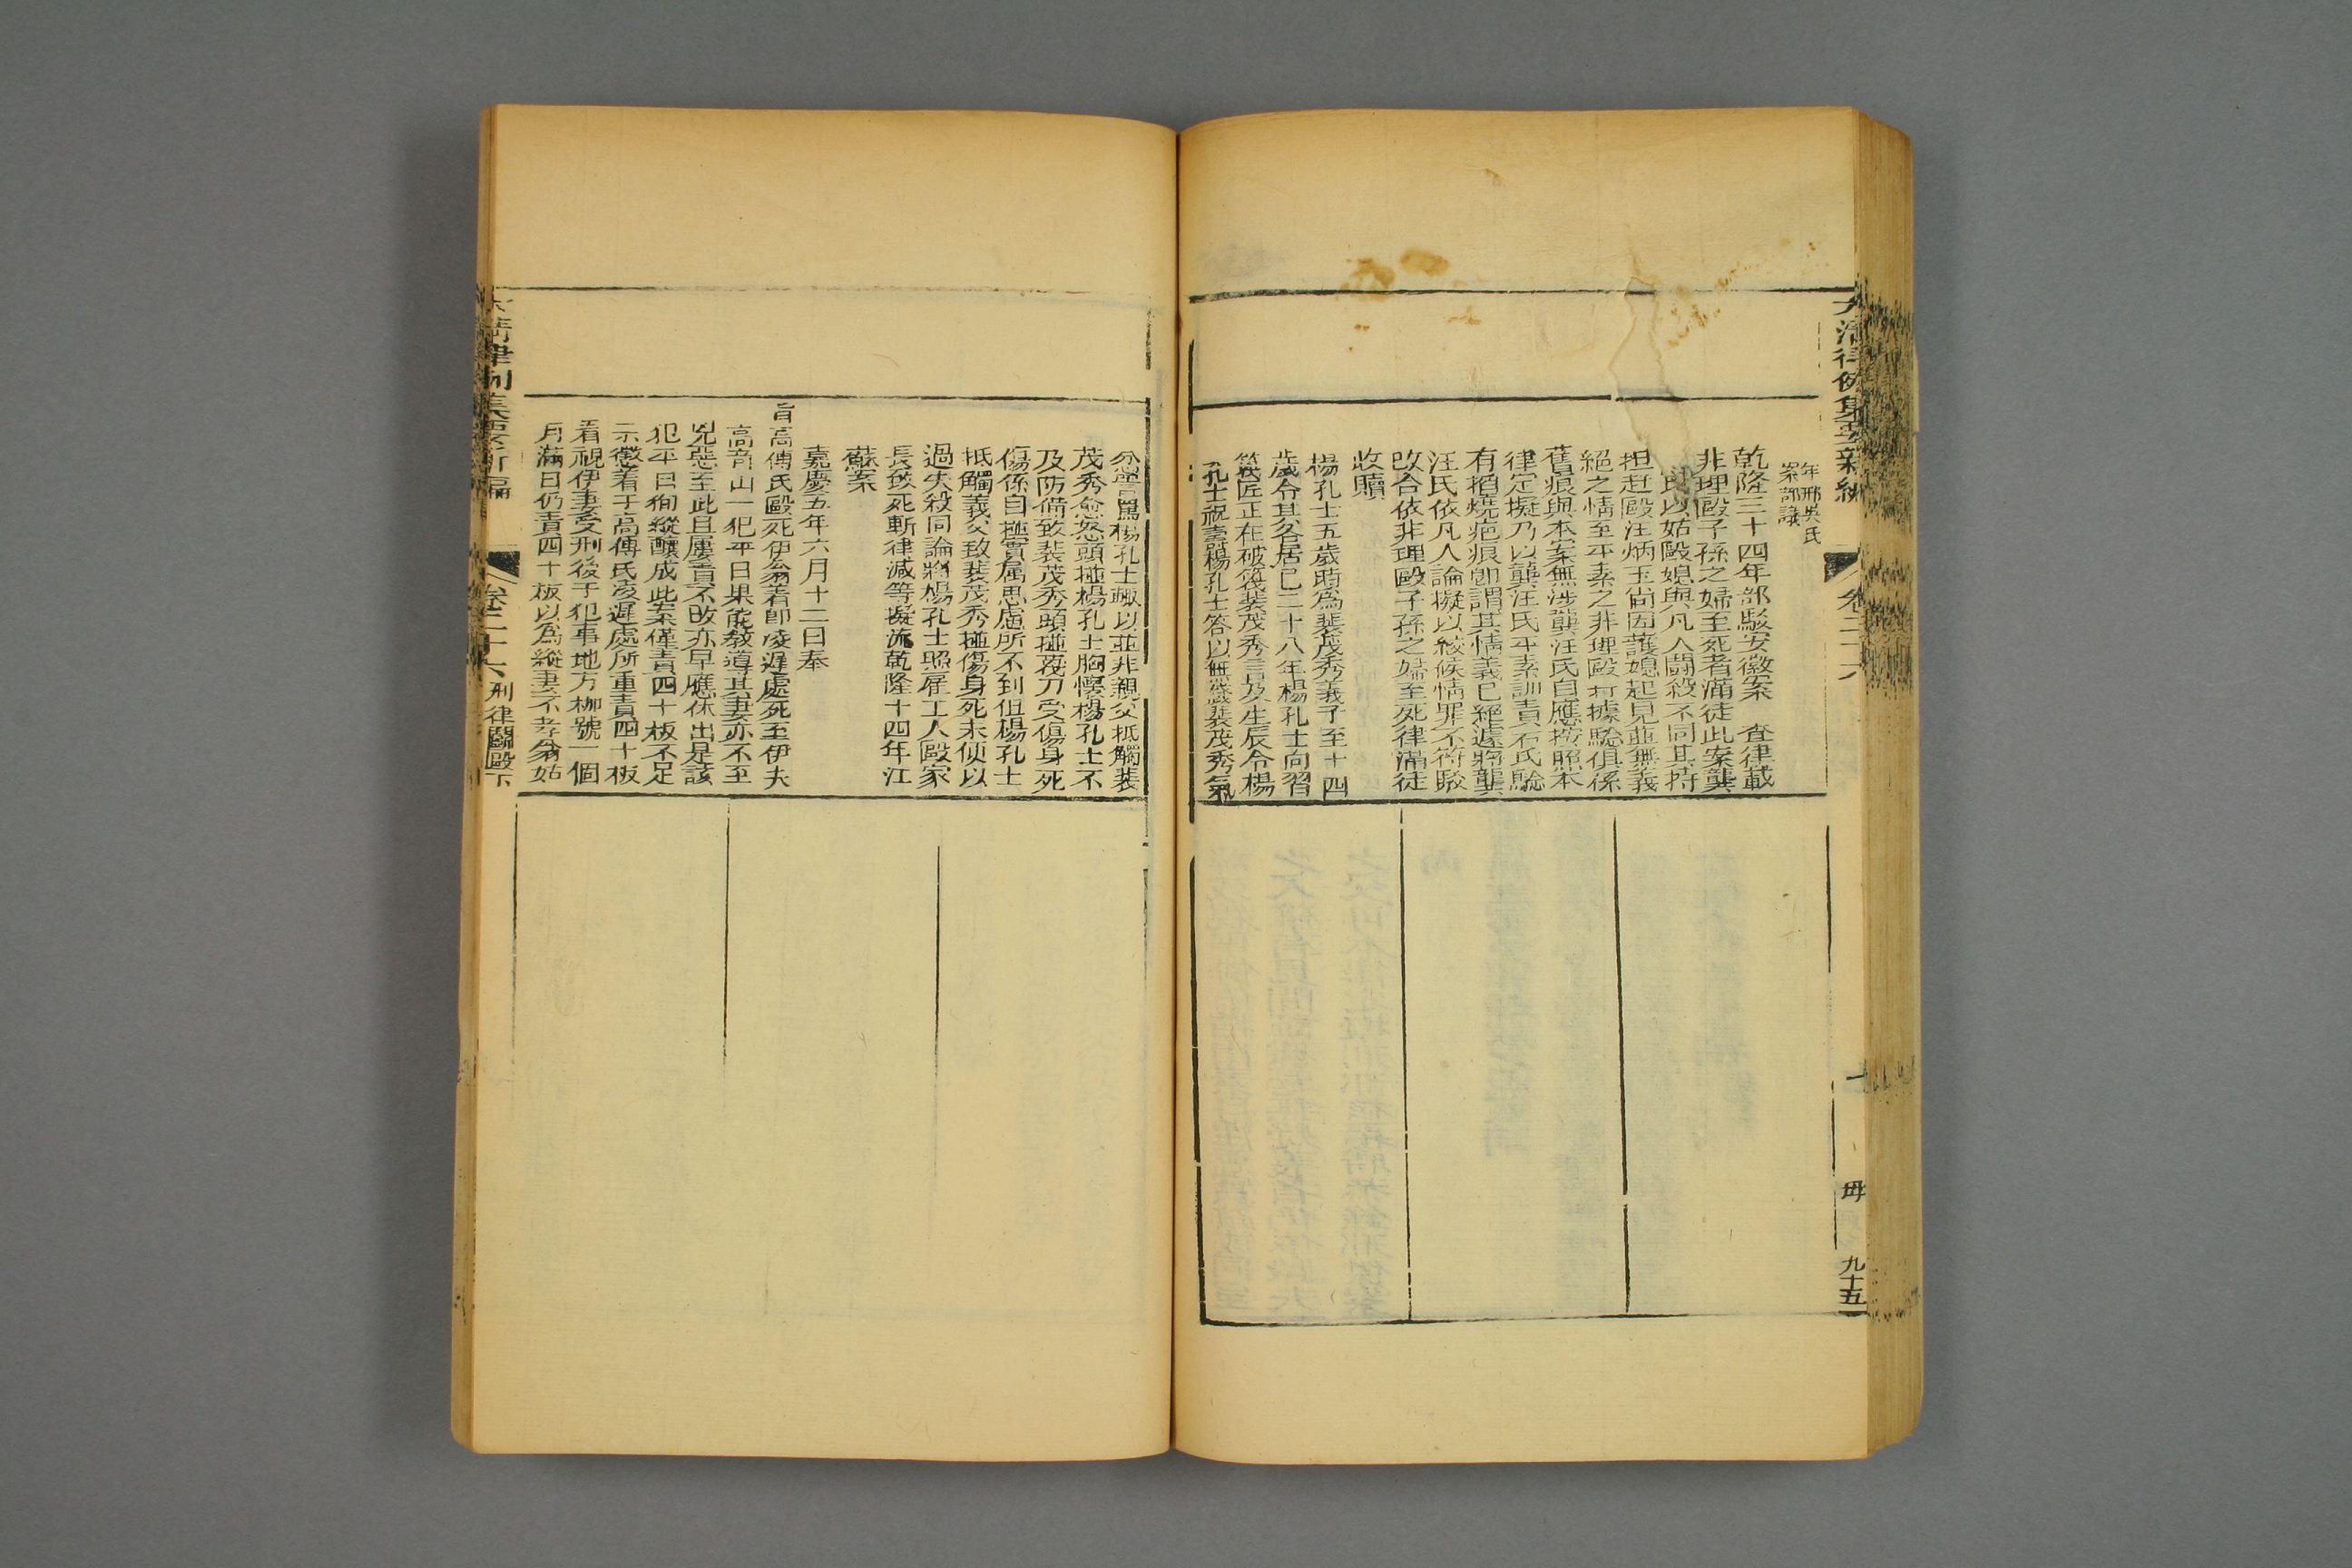 大清律例集要新編
卷二十六
毋
九十五
年邢吳氏
案部議
乾隆三十四年部駁安徽案　查律載
非理毆子孫之婦至死者滿徒此案龔
汪氏以姑毆媳與凡人鬬殺不同其持
担赶毆汪炳玉尙因護媳起見並無義
絕之情至平素之非理毆打據驗俱係
舊痕與本案無涉龔汪氏自應按照本
律定擬乃以龔汪氏平素訓責石氏驗
有掐燒疤痕卽謂其情義已絕遽將龔
汪氏依凡人論擬以絞候情罪不符駁
改合依非理毆子孫之婦至死律滿徒
收贖
楊孔士五歲時為裴茂秀義子至十四
歲令其各居已二十八年楊孔士向習
篾匠正在破篾裴茂秀言及生辰令楊
孔士祝壽楊孔士答以無錢裴茂秀氣
忿詈罵楊孔士輙以並非親父抵觸裴
茂秀愈怒頭撞楊孔士胸懷楊孔士不
及防備致裴茂秀頭碰篾刀受傷身死
傷係自撞實屬思慮所不到但楊孔士
抵觸義父致裴茂秀碰傷身死未便以
過失殺同論將楊孔士照雇工人毆家
長致死斬律減等擬流乾隆十四年江
蘇案
嘉慶五年六月十二日奉
旨高傅氏毆死伊翁着卽凌遲處死至伊夫
高奇山一犯平日果能教導其妻亦不至
兇惡至此且屢責不改亦早應休出是該
犯平日徇縱釀成此案僅責四十板不足
示懲着于高傅氏凌遲處所重責四十板
看視伊妻受刑後于犯事地方枷號一個
月滿日仍責四十板以為縱妻不孝翁姑
大清律例集要新編
卷二十六
刑律鬬毆下